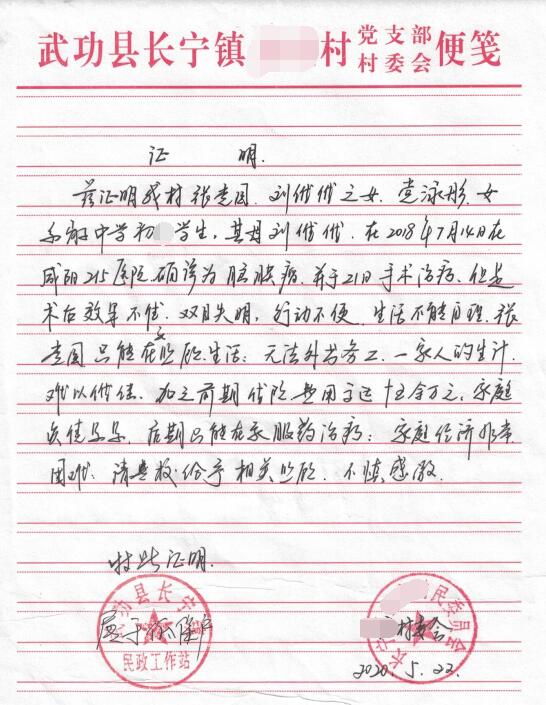 武功县长宁镇 村 党支部 村委会 便笺
证 明.
兹证明我村 张 刘 之女. 党泳彤. 女
中学初 学生. 其母刘 . 在2018年7月14日在
咸阳215医院确诊为脑膜病. 并于21日手术治疗. 但是
术后效果不佳. 双目失明, 行动不便. 生活不能自理. 张
只能在家照顾生活; 无法外出务工. 一家人的生计
难以维持. 加之前期住院费用高达十五余万元, 家庭
负债累累, 后期只能在家服药治病; 家庭经济非常
困难. 请贵校给予相关照顾. 不慎感激.
特此证明.
武功县长宁镇
民政工作站
属于 低保户
长宁 村民委员会
村委会
2020.5.22.